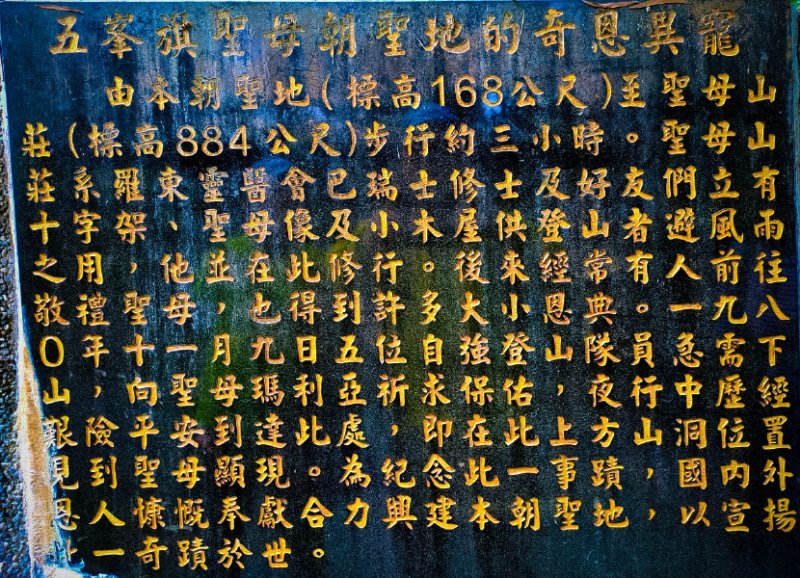 五峯旗聖母朝聖地的奇恩異寵
由本朝聖地(標高168公尺)至聖母山
莊(標高884公尺)步行約三小時。聖母山
莊系羅東靈醫會巴瑞士修士及好友們立有
十字架、聖母像及小木屋供登山者避風雨
之用,他並在此修行。後來經常有人前往
敬禮聖母,也得到許多大小恩典。一九八
〇年十一月九日五位自強登山隊員急需下
山,向聖母瑪利亞祈求保佑,夜行中歷經
艱險平安到達此處,即在此上方山洞位置
見到聖母顯現。為紀念此一事蹟,國內外
恩人慷慨奉獻合力興建本朝聖地,以宣揚
此一奇蹟於世。